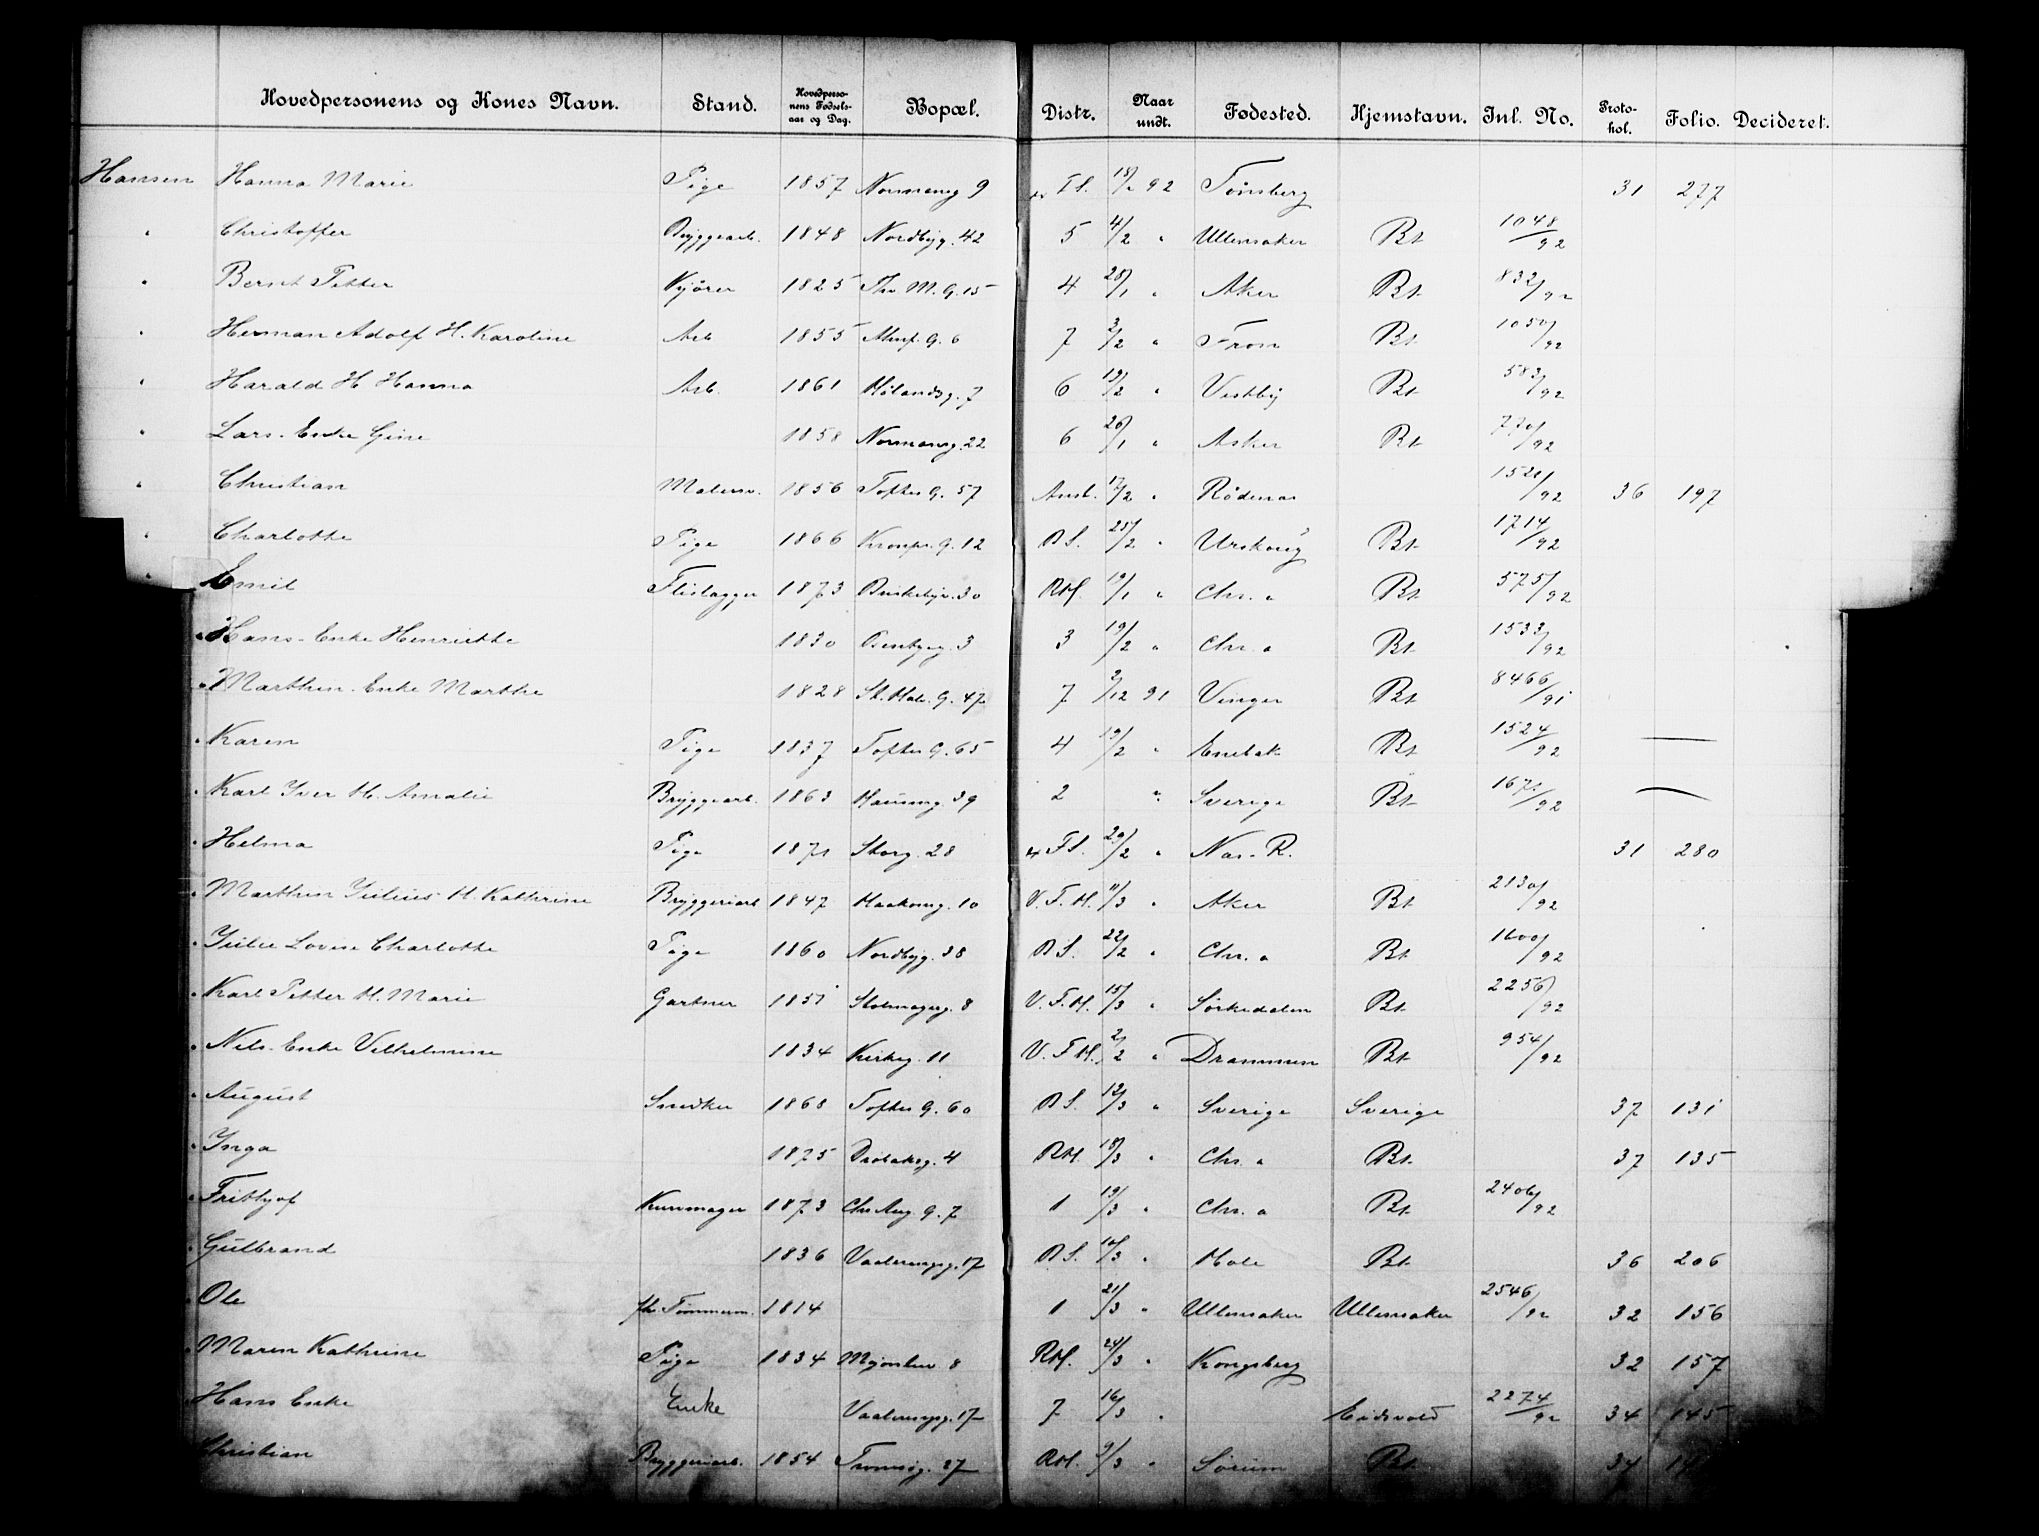 Hovedpersonens og Kones Navn. Stand. Hovedpersonens Fødselsaar og Dag. Bopæl. Distr. Naar undt. Fødested. Hjemstavn. Inl. No. Protokol. Folio. Decideret.
Hansen Hanna Marie Pige 1857 Normansg 9 92 Tønsberg 31 277
" Christoffer Bryggearb. 1848 Nordbyg. 42 5 4/2 " Ullensaker Bt 1048/92
" Bernt Petter Kjører 1825 Th. M. G. 15 4 28/1 " Aker Bt 832/92
" Herman Adolf H. Karoline Arb 1855 G. 6 7 2/2 " Fron Bt 1050/92
" Harald H Hanna Arb. 1861 Hølandsg. 7 6 13/2 " Vestby Bt 583/92
" Lars. Enke Gine 1858 Normansg. 22 6 26/1 " Asker Bt 770/92
" Christian Malersv. 1856 Toftes G. 57 Anst. 17/2 " Rødenæs 1521/92 36 197
" Charlotte Pige 1866 Kronpr. G. 12 B S. 25/2 " Urskoug Bt 1714/92
" Emil Flislægger 1873 30 RH. 19/1 " Chr. a Bt 575/92
" Hans. Enke Henriette 1830 3 3 19/2 " Chr. a Bt 1533/92
" Marthin. Enke Marthe 1828 St. Halv. G. 47 7 2/12 91 Vinger Bt 8466/91
" Karen Pige 1837 Toftes G. 65 4 19/2 " Enebak Bt 1524/92 —
" Karl Iver H. Amalie Bryggearb. 1863 Hausmg. 39 2 " Sverige Bt 1671/92 —
" Helma Pige 1871 Storg. 28 4 F S. 29/2 " Nes. R. 31 280
" Marthin Julius H. Kathrine Bryggeriarb 1847 Haakong. 10 V. F. H. 11/3 " Aker Bt 2130/92
" Julie Lovise Charlotte Pige 1860 Nordbyg. 38 B S. 22/2 " Chr. a Bt 1600/92
" Karl Petter H. Marie Gartner 1851 Holmsgg. 8 V. F. H. 15/3 " Sørkedalen Bt 2256/92
" Nils. Enke Vilhelmine 1834 Kirkeg. 11 V. F H. 2/2 " Drammen Bt 954/92
" August Snedker 1868 Toftes G. 60 B S. 12/3 " Sverige Sverige 37 131
" Inga 1875 Drøbaksg. 4 RH. 18/3 " Chr. a Bt. 37 135
" Frithjof Kurvmager 1873 Chr Aug. G. 7 1 19/3 " Chr. a Bt 2406/92
" Gulbrand 1836 Vaalerengsg. 17 B S. 10/3 " Hole Bt 36 206
" Ole fh. Tømmerm. 1814 1 21/3 " Ullensaker Ullensaker 2546/92 32 156
" Maren Kathrine Pige 1834 8 RH. 24/3 " Kongsberg 32 157
Hans Enke Enke Vaalerengsg. 17 7 16/3 " Eidsvold 2274/92 34 145
Christian Bryggeriarb. 1854 Tromsøg. 27 RH. 9/3 " Sørum Bt 34